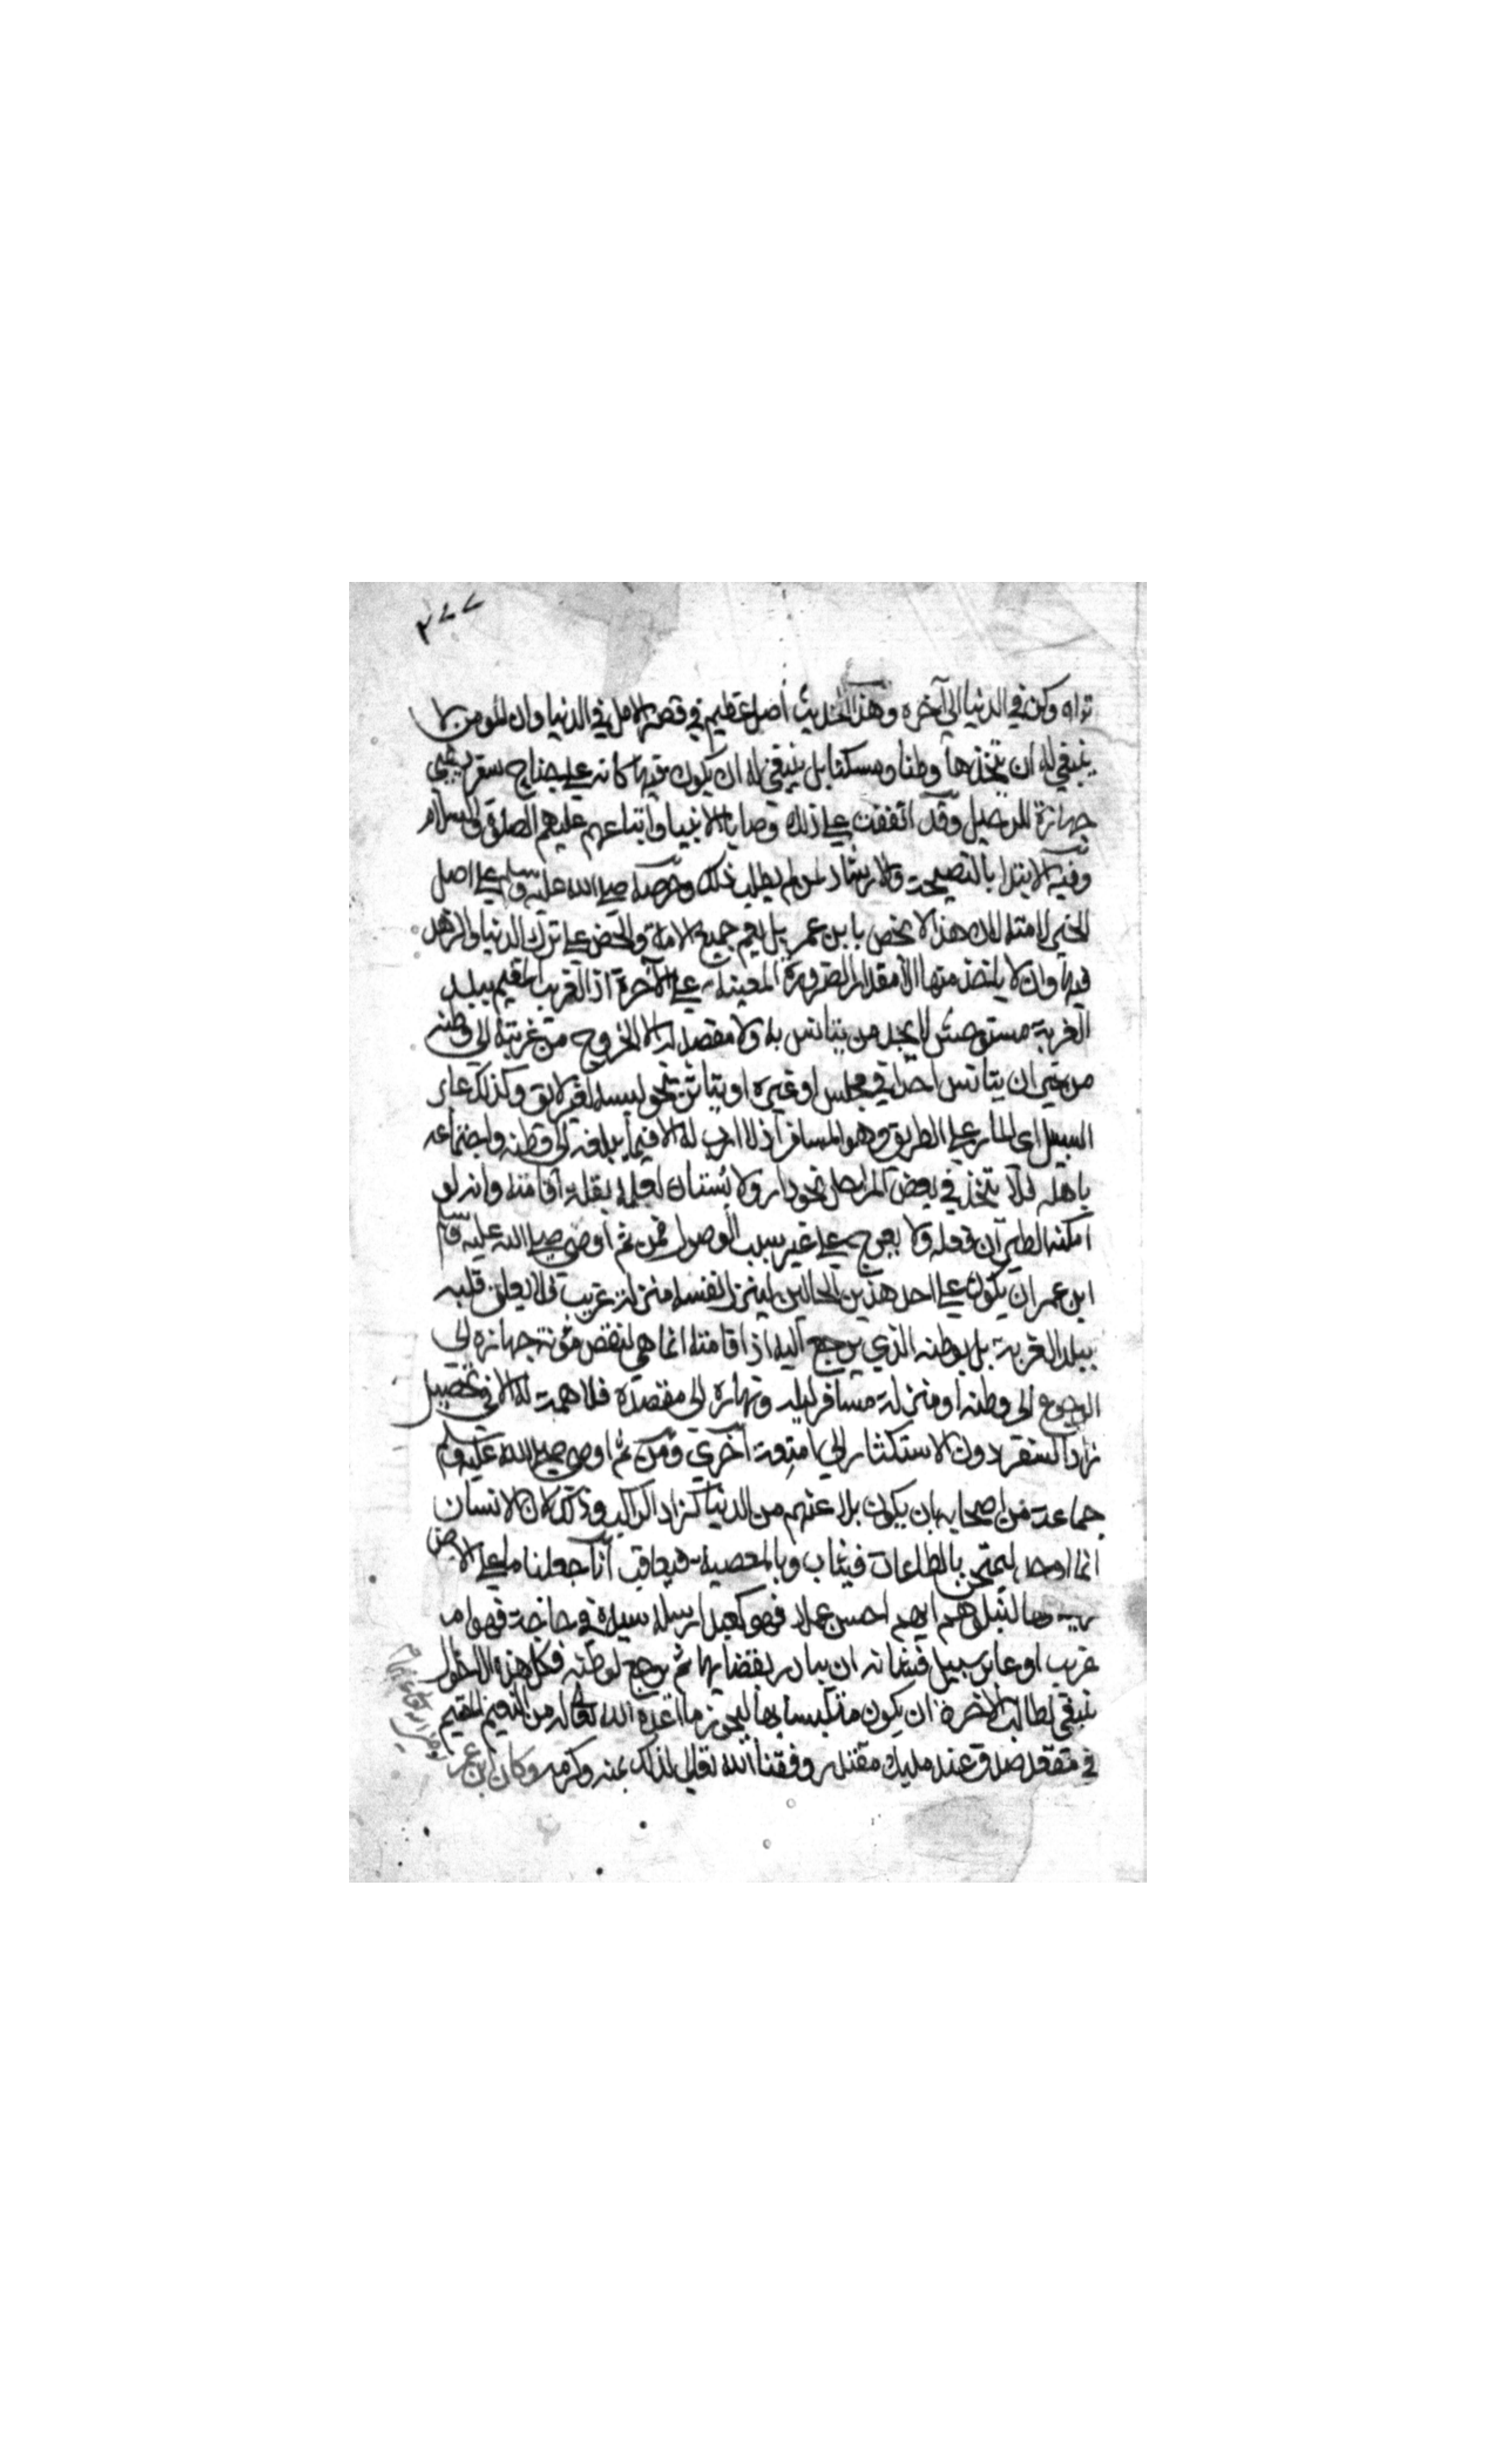 تراه وكن في الدنيا الى آخره وهذا الحديث أصل عظيم في قصر الامل في الدنيا وان المؤمن لا
ينبغي له ان يتخذها وطنا ومسكنا بل ينبغي له ان يكون فيها كانه على جناح سفر يهيئ
جهازه للرحيل وقد اتفقت على ذلك وصايا الانبيا واتباعهم عليهم الصلوة والسلام
وفيه الابتدا بالنصيحة والارشاد لمن لم يطلب ذلك وحرصه صلى الله عليه وسلم على اصل
الخير لامته لان هذا لا يخص بابن عمر بل يعم جميع الامة والحض على ترك الدنيا والزهد
فيها وان لا ياخذ منها الا مقدار الضرورة المعينة على الآخرة اذ الغريب المقيم ببلد
الغربة مستوحش لا يجد من يتانس به ولا مقصد له الا الخروج من غربته الى وطنه
من غير ان يتانس احدا في مجلس او غيره او يتاثر بنحو لبسه لغير لايق وكذلك عابر
السبيل اى المار على الطريق وهو المسافر اذ لا ارب له الا فيما يبلغه الى وطنه واجتماعه
باهله فلا يتخذ في بعض المراحل نحو دار ولا بستان لعلمه بقلة اقامته وانه لو
امكنه الطيران فعله ولا يعرج على غير سبب الوصول فمن ثم أوصى صلى الله عليه وسلم
ابن عمر ان يكون على احد هذين الحالين لينزل نفسه منزلة غريب فلا يعلق قلبه
ببلد الغربة بل بوطنه الذي يرجع اليه اذ اقامته انما هي لنقض مؤنة جهازه الى
الرجوع الى وطنه او منزلة مسافر ليله ونهاره الى مقصده فلا همة له الا في تحصيل
زاد السفر دون الاستكثار الى امتعة آخرى ومن ثم اوصى صلى الله عليه وسلم
جماعة من اصحابه بان يكون بلاغهم من الدنيا كزاد الراكب وذلك لان الانسان
انما اوجد ليمتحن بالطاعات فيثاب وبالمعصية فيعاقب انا جعلنا ما على الارض
زينة لها لنبلوهم ايهم احسن عملا فهو كعبد ارسله سيده في حاجة فهو اما
غريب او عابر سبيل فشانه ان يبادر بقضايها ثم يرجع لوطنه فكل هذه الاحوال
ينبغي لطالب الاخرة ان يكون متلبسا بها ليحوز ما اعده الله تعالى له من النعيم المقيم
في مقعد صدق عند مليك مقتدر وفقنا الله تعالى لذلك بمنه وكرمه وكان ابن عمر